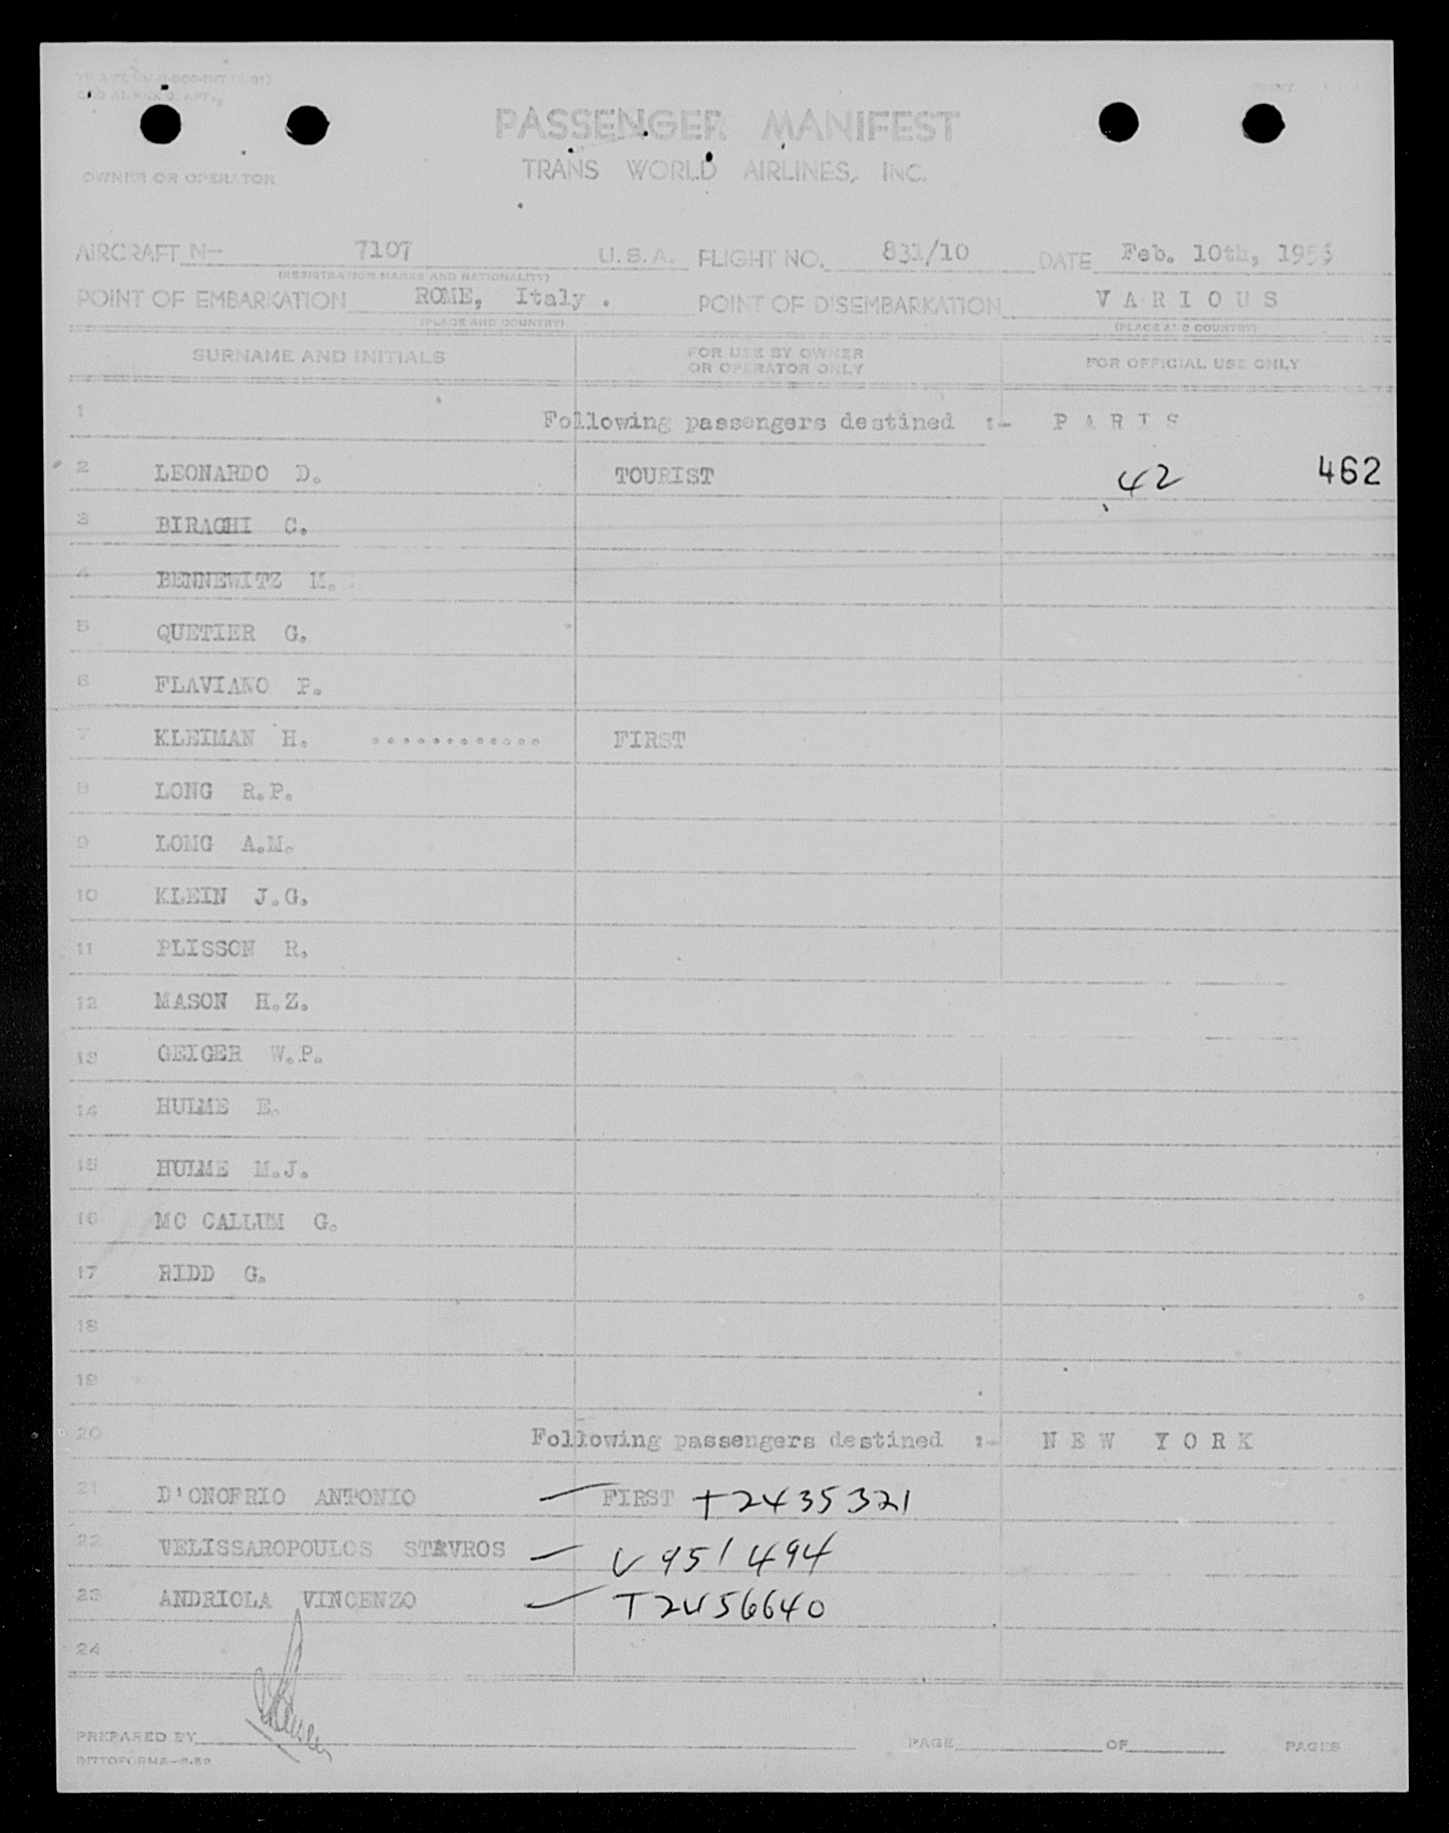 PASSENGER MANIFEST
TRANS WORLD AIRLINES, INC.
OWNER OR OPERATOR
AIRCRAFT N— 7107 U.S.A. FLIGHT NO. 831/10 DATE Feb. 10th,
(REGISTRATION MARKS AND NATIONALITY)
POINT OF EMBARKATION ROME, Italy . POINT OF DISEMBARKATION VARIOUS
(PLACE AND COUNTRY) (PLACE AND COUNTRY)
SURNAME AND INITIALS FOR USE BY OWNER OR OPERATOR ONLY FOR OFFICIAL USE ONLY
1 Following passengers destined :- PARIS
2 LEONARDO D. TOURIST 42 462
3 BIRAGHI C.
4 BENNEWITZ M.
5 QUETIER G.
6 FLAVIANO P.
7 KLEIMAN H. ............ FIRST
8 LONG R.P.
9 LONG A.M.
10 KLEIN J.G.
11 PLISSON R.
12 MASON H.Z.
13 GEIGER W.P.
14 HULME E.
15 HULME M.J.
16 MC CALLUM G.
17 RIDD G.
18
19
20 Following passengers destined :- NEW YORK
21 D'ONOFRIO ANTONIO — FIRST T2435321
22 VELISSAROPOULOS STAVROS — V951494
23 ANDRIOLA VINCENZO — T2456640
24
PREPARED BY PAGE OF PAGES